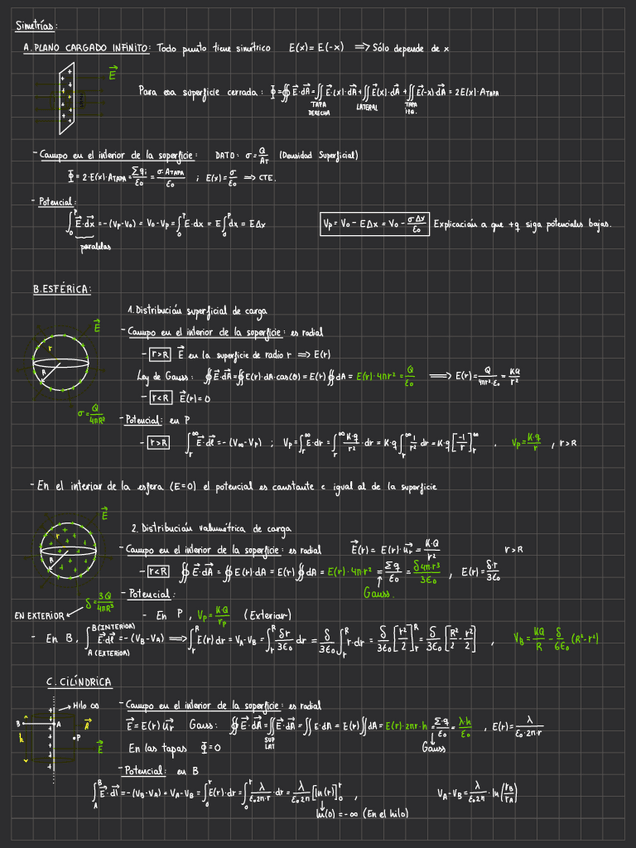 Simetrías:
A. PLANO CARGADO INFINITO: Todo punto tiene simétrico E(x) = E(-x) ⟹ Sólo depende de x
E⃗
Para esa superficie cerrada: Φ = ∯ E⃗·dA⃗ = ∬ E(x)·dA⃗ + ∬ E(x)·dA⃗ + ∬ E(-x)·dA⃗ = 2E(x)·A_TAPA
TAPA DERECHA LATERAL TAPA IZQ.
- Campo en el interior de la superficie: DATO: σ = Q/A_T (Densidad Superficial)
Φ = 2·E(x)·A_TAPA = Σq_i/ε₀ = σ·A_TAPA/ε₀ ; E(x) = σ/ε₀ ⟹ CTE.
- Potencial:
∫₀^P E⃗·dx⃗ = -(V_P - V₀) = V₀ - V_P = ∫₀^P E·dx = E∫₀^P dx = EΔx
V_P = V₀ - EΔx = V₀ - σΔx/ε₀ Explicación a que +q siga potenciales bajas.
paralelas
B. ESFÉRICA:
1. Distribución superficial de carga
E⃗
- Campo en el interior de la superficie: es radial
- r>R E⃗ en la superficie de radio r ⟹ E(r)
r
R
Ley de Gauss: ∯ E⃗·dA⃗ = ∯ E(r)·dA·cos(0) = E(r) ∯ dA = E(r)·4πr² = Q/ε₀ ⟹ E(r) = Q/4πr²·ε₀ = KQ/r²
- r<R E⃗(r) = 0
σ = Q/4πR²
- Potencial: en P
- r>R ∫_r^∞ E⃗·dl⃗ = -(V∞ - V_P) ; V_P = ∫_r^∞ E·dr = ∫_r^∞ K·q/r² · dr = K·q ∫_r^∞ 1/r² dr = K·q [-1/r]_r^∞ , V_P = K·q/r , r>R
- En el interior de la esfera (E=0) el potencial es constante e igual al de la superficie
E⃗
2. Distribución volumétrica de carga
r
R
- Campo en el interior de la superficie: es radial E⃗(r) = E(r)·u⃗r = K·Q/r² r>R
- r<R ∯ E⃗·dA⃗ = ∯ E(r)·dA = E(r) ∯ dA = E(r)·4πr² = Σq/ε₀ = δ4πr³/3ε₀ , E(r) = δ·r/3ε₀
Gauss.
δ = 3Q/4πR³
- Potencial:
EN EXTERIOR
- En P, V_P = K·Q/r_P (Exterior)
- En B, ∫_A(EXTERIOR)^B(INTERIOR) E⃗·dl⃗ = -(V_B - V_A) ⟹ ∫_r^R E(r)dr = V_A - V_B = ∫_r^R δr/3ε₀ dr = δ/3ε₀ ∫_r^R r·dr = δ/3ε₀ [r²/2]_r^R = δ/3ε₀ [R²/2 - r²/2] , V_B = KQ/R - δ/6ε₀ (R²-r²)
C. CILÍNDRICA
Hilo ∞
B
A
A⃗
h
P
E⃗
- Campo en el interior de la superficie: es radial
E⃗ = E(r) u⃗r Gauss: ∯ E⃗·dA⃗ = ∬ E⃗·dA⃗ = ∬ E·dA = E(r) ∬ dA = E(r)·2πr·h = Σq/ε₀ = λ·h/ε₀ , E(r) = λ/ε₀·2πr
SUP LAT
Gauss
En las tapas Φ=0
- Potencial: en B
∫_A^B E⃗·dl⃗ = -(V_B - V_A) = V_A - V_B = ∫₀^r E(r)·dr = ∫₀^r λ/ε₀2πr · dr = λ/ε₀2π [ln(r)]₀^r , V_A - V_B = λ/ε₀2π · ln(r_B/r_A)
ln(0) = -∞ (En el hilo)